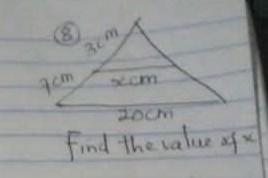 8
3cm
7cm
xcm
20cm
Find the value of x